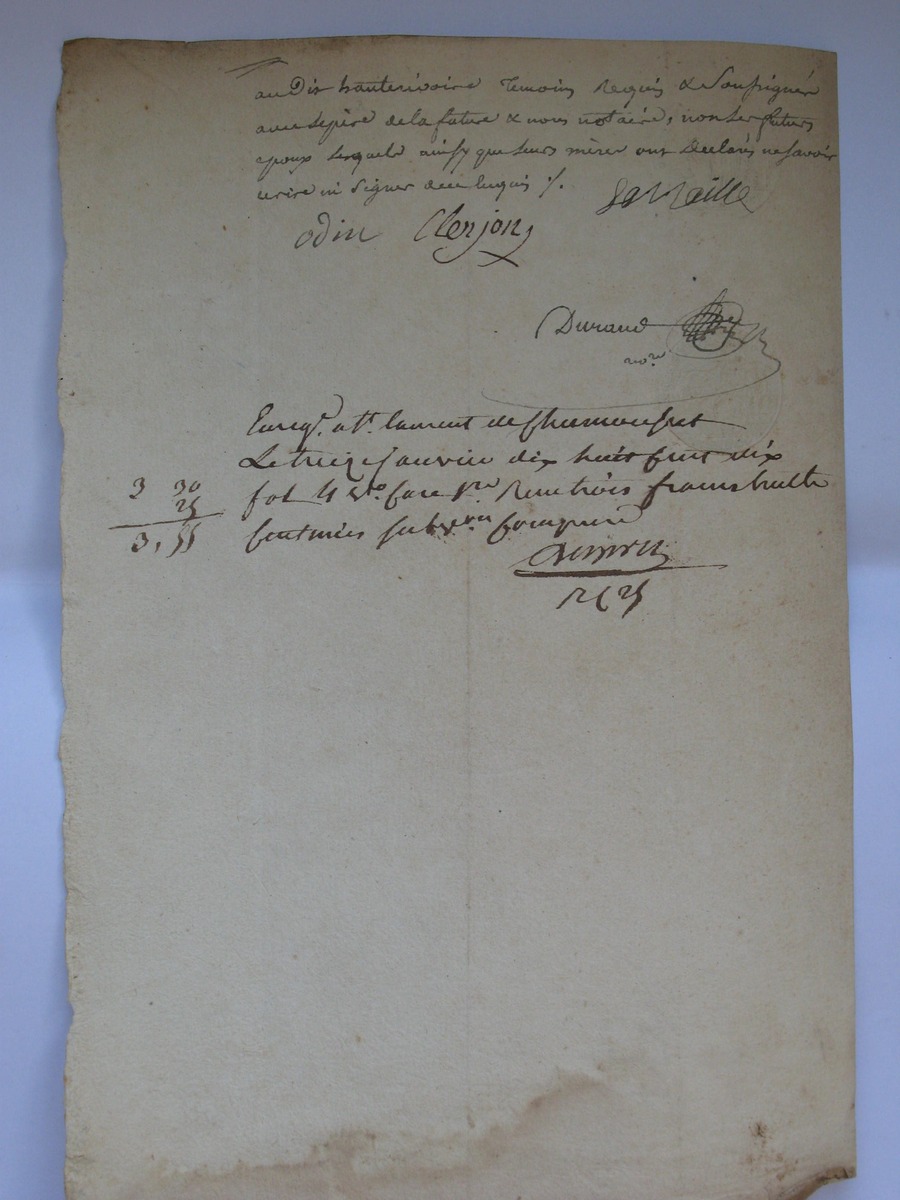 au Dit hauterivoire temoins requis & Soussignés
avec le père de la future & nous notaire, non les futurs
epoux lesquels ainsy que leurs mères ont Declarés ne savoir
ecrire ni signer de ce enquis ./.
odin Clerjon
Durand
nore
Enregt. a St. laurent de Chamousset
Le treize janvier dix huit cent dix
3 30 fol 4 Vo. Case 1re Reçu trois francs trente
25
3,55 centimes subvon comprise